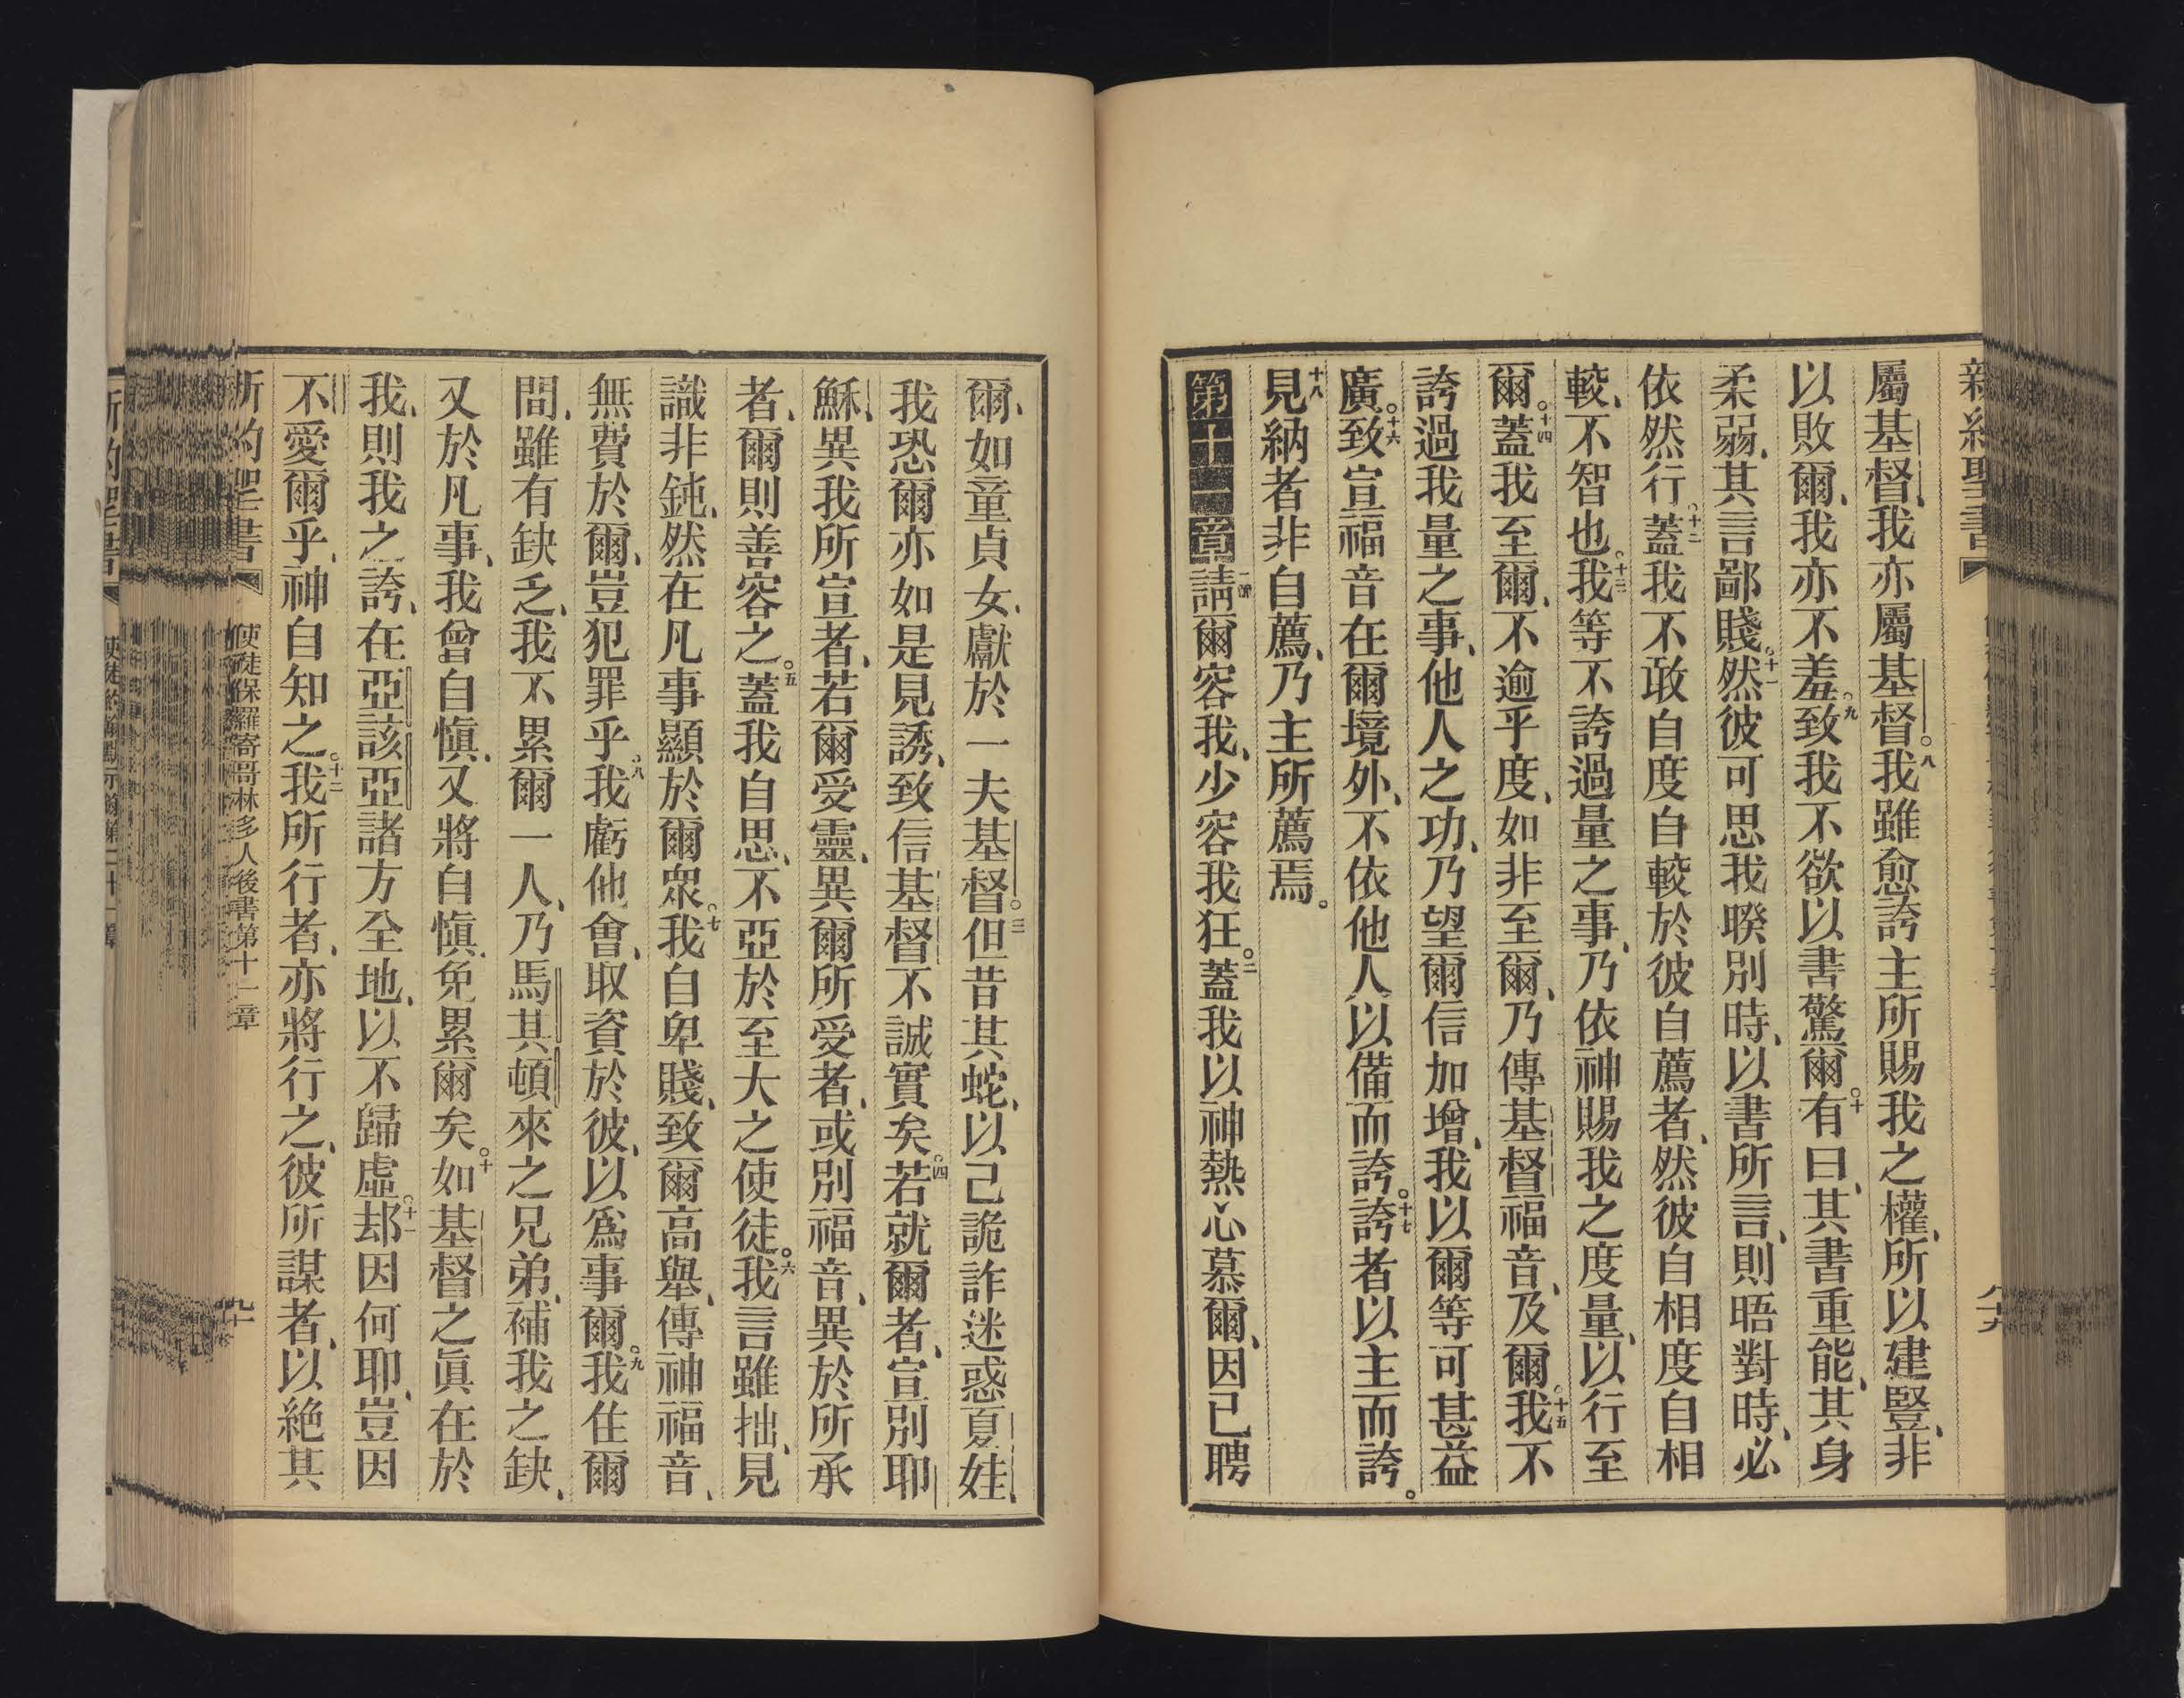 新約聖書
八十九
屬基督、我亦屬基督。八我雖愈誇主所賜我之權、所以建豎、非
以敗爾、我亦不羞。九致我不欲以書驚爾。十有曰、其書重能、其身
柔弱、其言鄙賤。十一然彼可思我暌別時、以書所言、則晤對時、必
依然行。十二蓋我不敢自度自較於彼自薦者、然彼自相度自相
較、不智也。十三我等不誇過量之事、乃依神賜我之度量、以行至
爾。十四蓋我至爾、不逾乎度、如非至爾、乃傳基督福音、及爾。十五我不
誇過我量之事、他人之功、乃望爾信加增、我以爾等可甚益
廣。十六致宣福音在爾境外、不依他人以備而誇。十七誇者以主而誇。
十八見納者非自薦、乃主所薦焉。
第十一章 一節請爾容我、少容我狂。二蓋我以神熱心慕爾、因已聘
爾、如童貞女、獻於一夫基督。三但昔其蛇、以己詭詐迷惑夏娃、
我恐爾亦如是見誘、致信基督不誠實矣。四若就爾者、宣別耶
穌、異我所宣者、若爾受靈、異爾所受者、或別福音、異於所承
者、爾則善容之。五蓋我自思、不亞於至大之使徒。六我言雖拙、見
識非鈍、然在凡事顯於爾眾。七我自卑賤、致爾高舉、傳神福音、
無費於爾、豈犯罪乎。八我虧他會、取資於彼、以爲事爾。九我住爾
間、雖有缺乏、我不累爾一人、乃馬其頓來之兄弟、補我之缺、
又於凡事、我曾自愼、又將自愼、免累爾矣。十如基督之眞在於
我、則我之誇、在亞該亞諸方全地、以不歸虛。十一却因何耶、豈因
不愛爾乎、神自知之。十二我所行者、亦將行之、彼所謀者、以絕其
新約聖書
使徒保羅寄哥林多人後書第十一章
九十